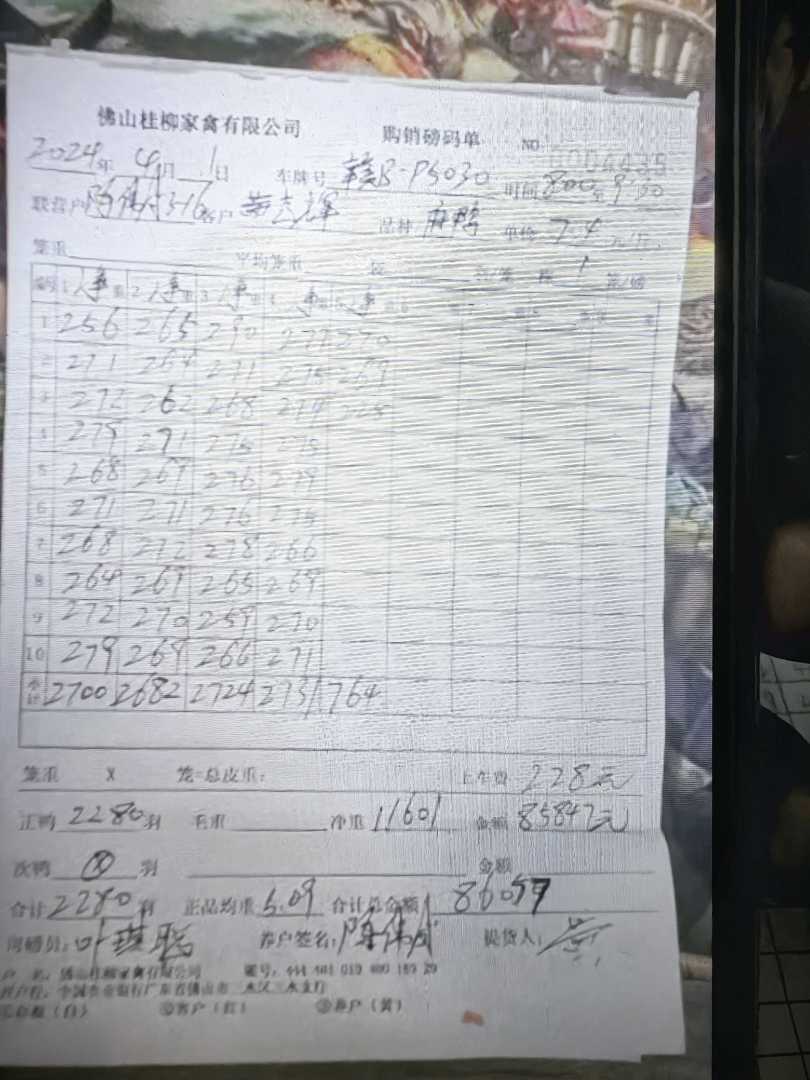 佛山桂柳家禽有限公司 购销磅码单 NO 0004435
2024年 4月 1日 车牌号 赣B-P5030 时间
联营户 客户 黄志辉 品种 麻鸭 单价 7.4 元/斤
笼重 平均笼重
编号 1 净重 2 净重 3 净重 4 净重 5 净重
1 256 265 290 277 270
2 271 264 271 275 269
3 272 262 268 274 225
4 279 271 275 275
5 268 269 276 279
6 271 271 276 275
7 268 272 278 266
8 264 269 265 269
9 272 270 259 270
10 279 268 266 271
小计 2700 2682 2724 2731 764
笼重 X 笼=总皮重: 上车费 228元
正鸭 2280 羽 毛重 净重 11601 金额 85847元
次鸭 羽 金额
合计 2280 羽 正品均重 5.09 合计总金额
司磅员: 叶琪聪 养户签名: 陈伟 提货人:
户 名: 佛山桂柳家禽有限公司
开户行: 中国农业银行广东省佛山市三水区三水支行
(白) ②客户(红) ③养户(黄)